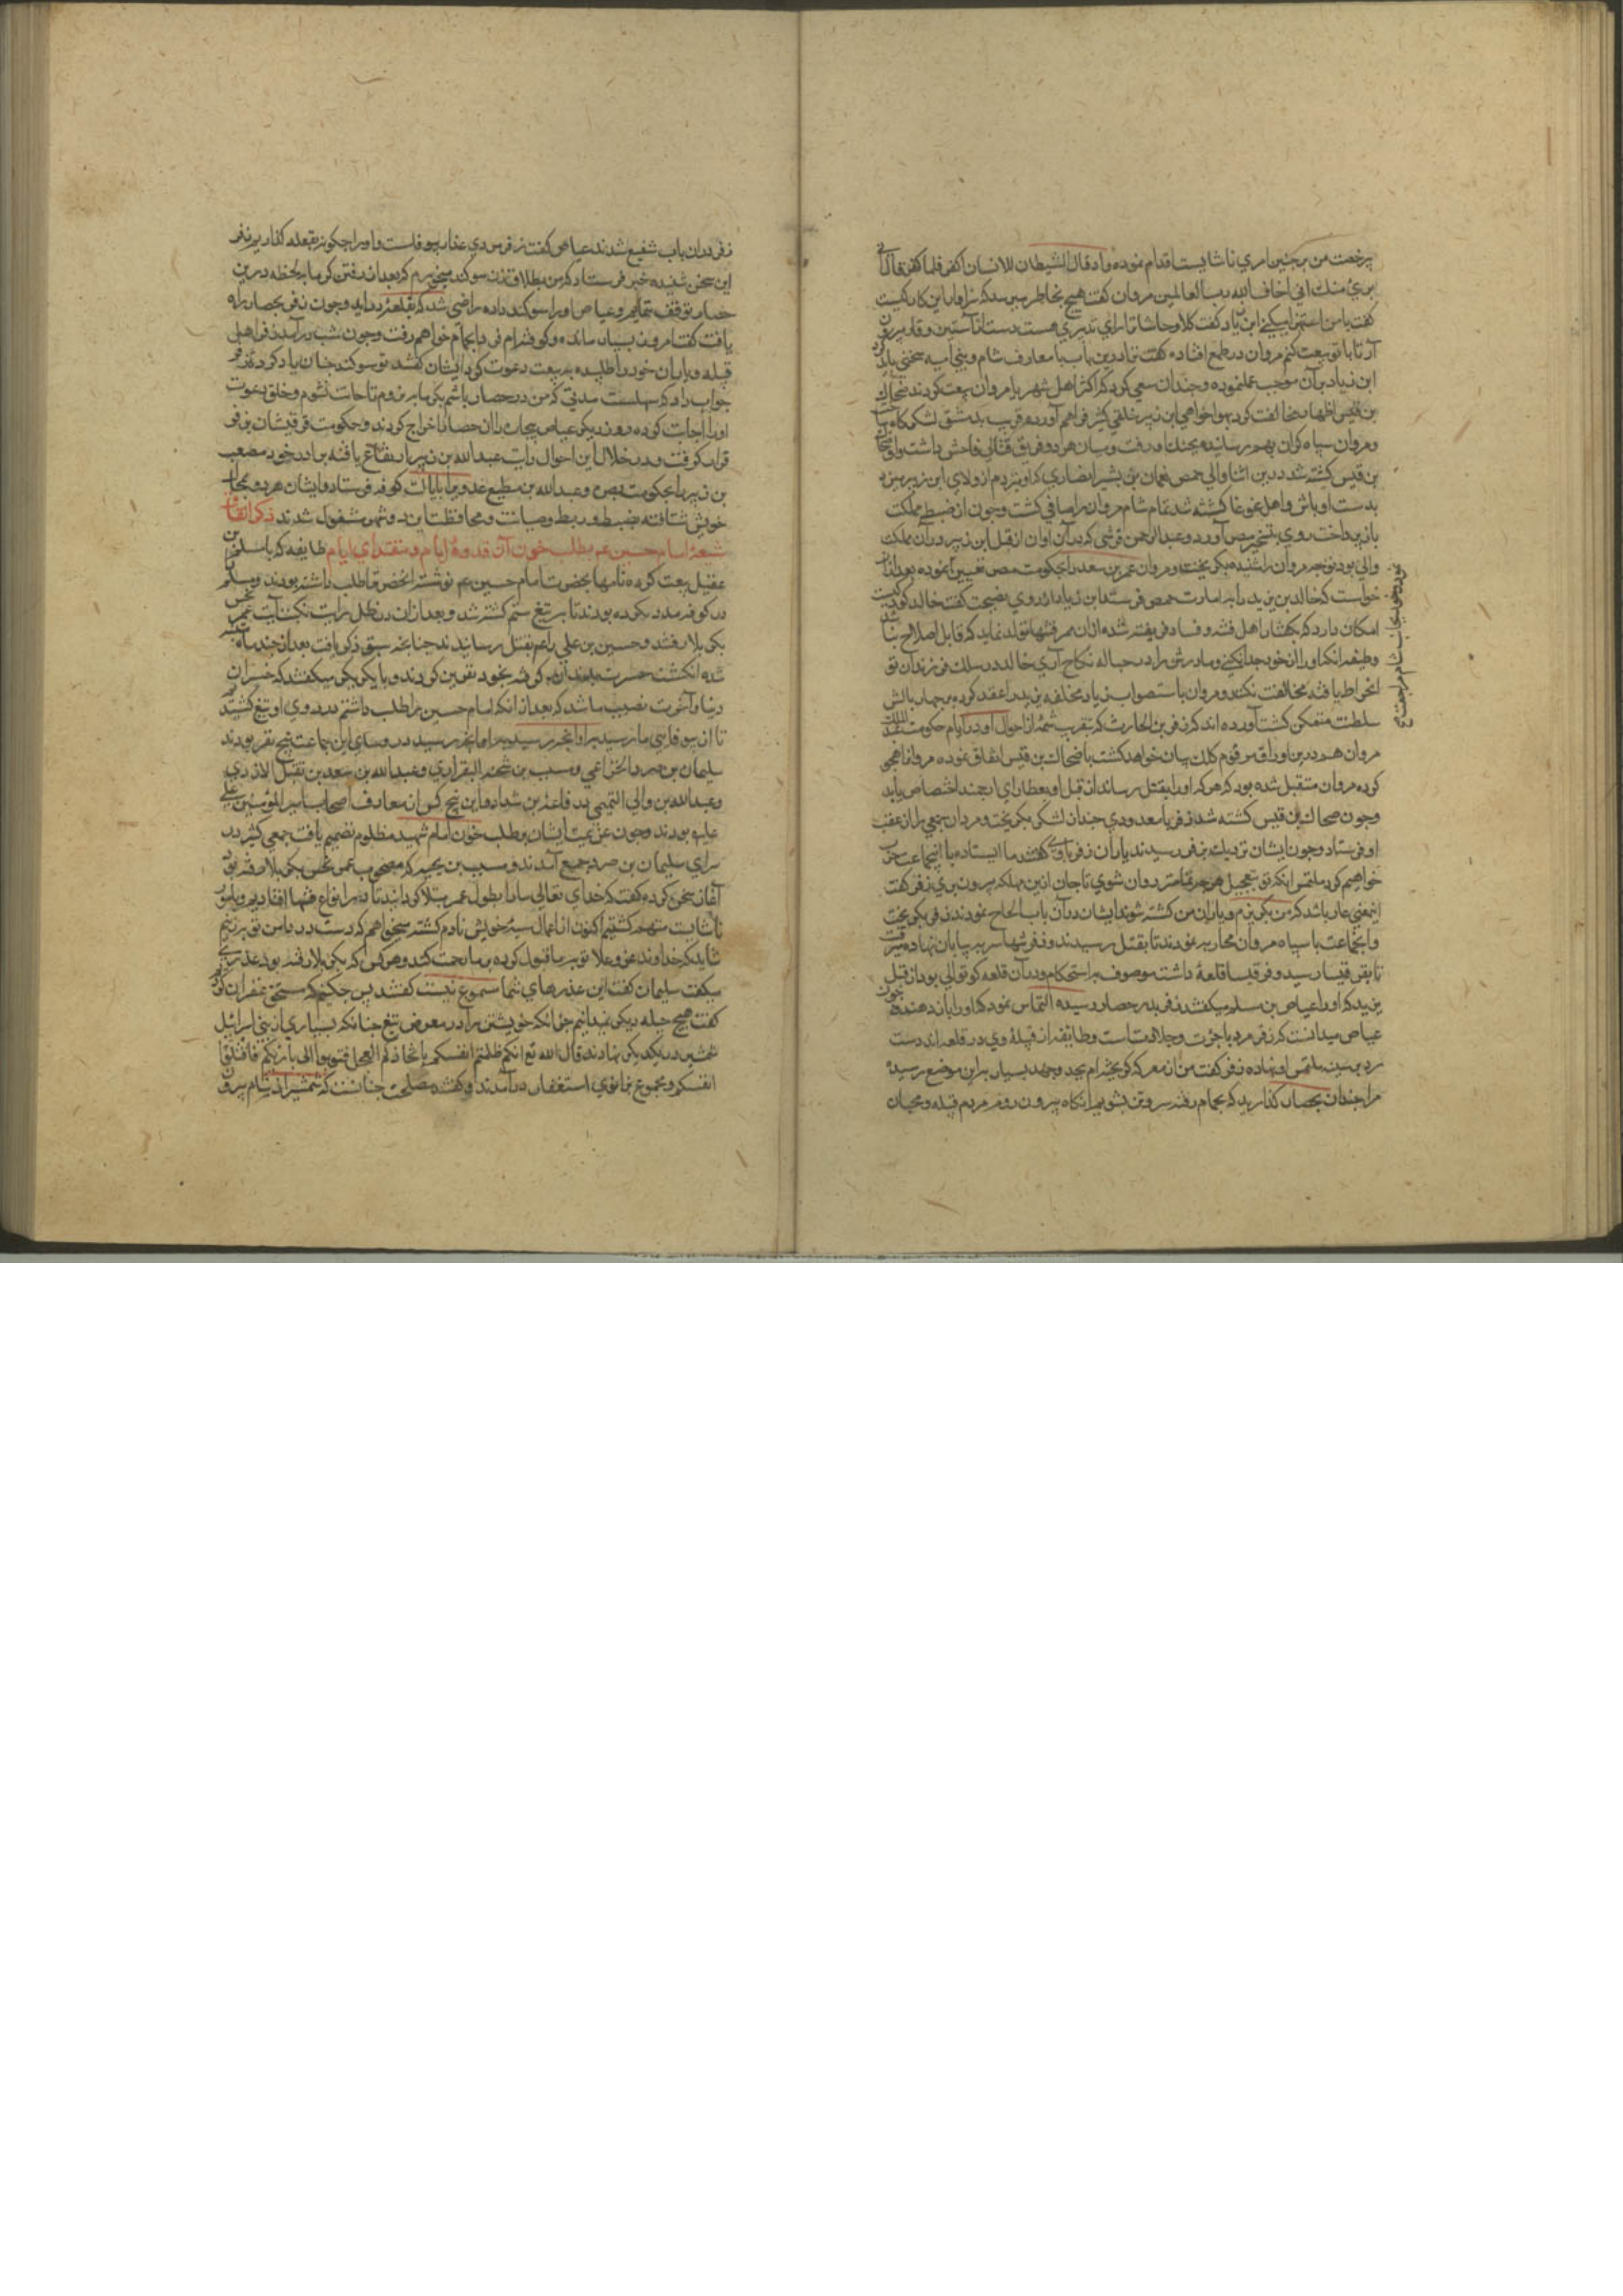 برخصت من برچنین امری ناشایست اقدام نموده و اذ قال الشیطان للانسان اکفر فلما کفر قال انی
بریٔ منک انی اخاف الله رب العالمین مروان کفت هیچ بخاطر میرسد که سزاوار این کار کیست
کفت با من استهزا میکنی ابن زیاد کفت کلا و حاشا تا رای تدبیری هست دست از آستین وقار بیرون
آر تا با تو بیعت کنم مروان در طمع افتاده کفت ترا درین باب با معارف شام و بنی امیه سخنی باید کرد
ابن زیاد بران موجب عمل نموده و چندان سعی کرد که اکثر اهل شهر با مروان بیعت کردند ضحاک
بن قیس اظهار مخالفت کرد بهواخواهی ابن زبیر خلقی کثیر فراهم آورده قریب بدمشق لشکرکاه ساخت
و مروان سپاه کران بهم رسانیده بجنک او رفت و میان هر دو فریق قتالی فاحش داشت داد و ضحاک
بن قیس کشته شد درین اثنا والی حمص نعمان بن بشیر انصاری که او نیز دم از ولای ابن زبیر میزد
بدست اوباش و اهل غوغا کشته شد تمام شام مروان را صافی کشت و چون از ضبط مملکت
باز پرداخت روی بتسخیر مصر آورد و عبدالرحمن قرشی که در آن اوان از قبل ابن زبیر در آن مملکت
والی بود توجه مروان را شنیده بکریخت و مروان عمر بن سعد را بحکومت مصر تعیین نموده بعد از آن
خواست که خالد بن یزید را به امارت حمص فرستد ابن زیاد از روی نصیحت کفت خالد کودکیست
امکان دارد که بکفتار اهل فتنه و فساد فریفته شده ازان ممر فتنها تولد نماید که قابل اصلاح نباشد
وظیفه انکه او را از خود جدا نکنی و مادرش را در حباله نکاح آری خالد در سلک فرزندان تو
انخراط یافته مخالفت نکند و مروان باستصواب ابن زیاد مخلفه یزید را عقد کرده بر چهار بالش
سلطنت متمکن کشت آورده اند که زفر بن الحارث که بتقریب شمهٔ از احوال او در ایام حکومت عبدالملک
مروان هم درین اوراق مرقوم کلک بیان خواهد کشت با ضحاک بن قیس اتفاق نموده مروان را هجوی
کرده مروان متقبل شده بود که هر که او را بقتل رساند از قبل او بعطای ارجمند اختصاص یابد
و چون ضحاک بن قیس کشته شد زفر با معدودی چند از لشکر بکریخت و مروان جمعی را از عقب
او فرستاد و چون ایشان نزدیک بزفر رسیدند یاران زفر باوی کفتند ما ایستاده با اینجماعت حرب
خواهیم کرد ملتمس انکه تو بتعجیل هر چه تمامتر روان شوی تا جان ازین مهلکه بیرون بری زفر کفت
اینمعنی عار باشد که من بکریزم و یاران من کشته شوند ایشان در آن باب الحاح نمودند زفر بکریخت
و انجماعت با سپاه مروان محاربه نمودند تا بقتل رسیدند و زفر شبها سر به بیابان نهاده میرفت
تا بقرقیسا رسید و قرقیسا قلعهٔ داشت موصوف براستحکام و در آن قلعه کوتوالی بود از قبل
یزید که او را عیاض بن مسلم میکفتند زفر بدر حصار رسیده التماس نمود که او را بار دهند چون
عیاض میدانست که زفر مرد با جرئت و جلادتست و طایفه از قبیلهٔ وی در قلعه اند دست
رد بر سینه ملتمس او نهاده زفر کفت من از معرکه کریخته ام بجد و جهد بسیار براین موضع رسیده
مرا چندان بحصار کذارید که بحمام رفته سر و تن بشویم انکاه بیرون روم مردم قبیله و محبان
زفر دران باب شفیع شدند عیاض کفت زفر مردی غدار بیوفاست و او را چکونه بقلعه کذاریم زفر
این سخن شنیده خبر فرستاد که من بطلاق زن سوکند میخورم که بعد از رفتن کرمابه لحظه درین
حصار توقف ننمایم و عیاض او را سوکند داده راضی شد که بقلعه در آید و چون زفر بحصار راه
یافت کفت امروز بسیار مانده و کوفته ام فردا بحمام خواهم رفت و چون شب درآمد زفر اهل
قبیله و یاران خود را طلبیده به بیعت دعوت کرد ایشان کفتند تو سوکند چنان یاد کردهٔ زفر
جواب داد که سهلست مدتی که من در حصار باشم بکرمابه نروم تا حانث نشوم و خلق دعوت
او را اجابت کرده روز دیکر عیاض بیچاره را از حصار اخراج کردند و حکومت قرقیسان بزفر
قرار کرفت و در خلال این احوال رایت عبدالله بن زبیر ارتفاع یافته برادر خود مصعب
بن زبیر را بحکومت بصره و عبدالله بن مطیع عدوی را بایالت کوفه فرستاد و ایشان هر دو بمحال
خویش شتافته بضبط و ربط و صیانت و محافظت این دو شهر مشغول شدند ذکر اتفاق
شیعهٔ امام حسین عم بطلب خون آن قدوهٔ انام و مقتدای ایام طایفه که با مسلم بن
عقیل بیعت کرده نامها بحضرت امام حسین عم نوشته انحضرت را طلب داشته بودند و مسلم
در کوفه مدد نکرده بودند تا به تیغ ستم کشته شد و بعد ازان در ظل رایت نکبت آیت عمر نحس
بکربلا رفتند و حسین بن علی را عم بقتل رسانیدند چنانچه سبق ذکر یافت بعد از چند ماه متنبه
شده انکشت حسرت بدندان کرفته بخود نفرین کردند و با یکدیکر میکفتند که خسران
دنیا و آخرت نصیب ما شد که بعد از انکه امام حسین را طلب داشتیم در روی او تیغ کشیدیم
تا از بیوفایی ما رسید براو آنچه رسید برما آنچه رسید و روسای این جماعت پنج نفر بودند
سلیمان بن صرد الخزاعی و مسیب بن نجبه الفزاری و عبدالله بن سعد بن نفیل الازدی
و عبدالله بن والی التمیمی و رفاعة بن شداد و این پنج کس از معارف اصحاب امیر المؤمنین علی
علیه بودند و چون عزیمت ایشان بطلب خون امام شهید مظلوم تصمیم یافت جمعی کثیر در
سرای سلیمان بن صرد جمیع آمدند و مسیب بن نجبه که مصحوب عمر نحس بکربلا رفته بود
آغاز سخن کرده کفت که خدای تعالی ما را بطول عمر مبتلا کردانید تا در انواع فتنها افتادیم و بامور
ناشایست متهم کشتیم اکنون از اعمال سیئه خویش نادم کشته میخواهیم که دست در دامن توبه زنیم
شاید که خداوند عز و علا توبه ما قبول کرده برما رحمت کند و هر کس که بکربلا رفته بود عذری
میکفت سلیمان کفت این عذرهای شما مسموع نیست کفتند پس چکنیم که مستحق غفران کردیم
کفت هیچ حیله دیکر نمیدانیم جز انکه خویشتن را در معرض تیغ چنانکه بسیاری از بنی اسرائیل
شمشیر در یکدیکر نهادند قال الله تع انکم ظلمتم انفسکم باتخاذکم العجل فتوبوا الی بارئکم فاقتلوا
انفسکم و مجموع بزانوی استغفار درآمدند و کفتند مصلحت چنانست که شمشیر از نیام بیرون